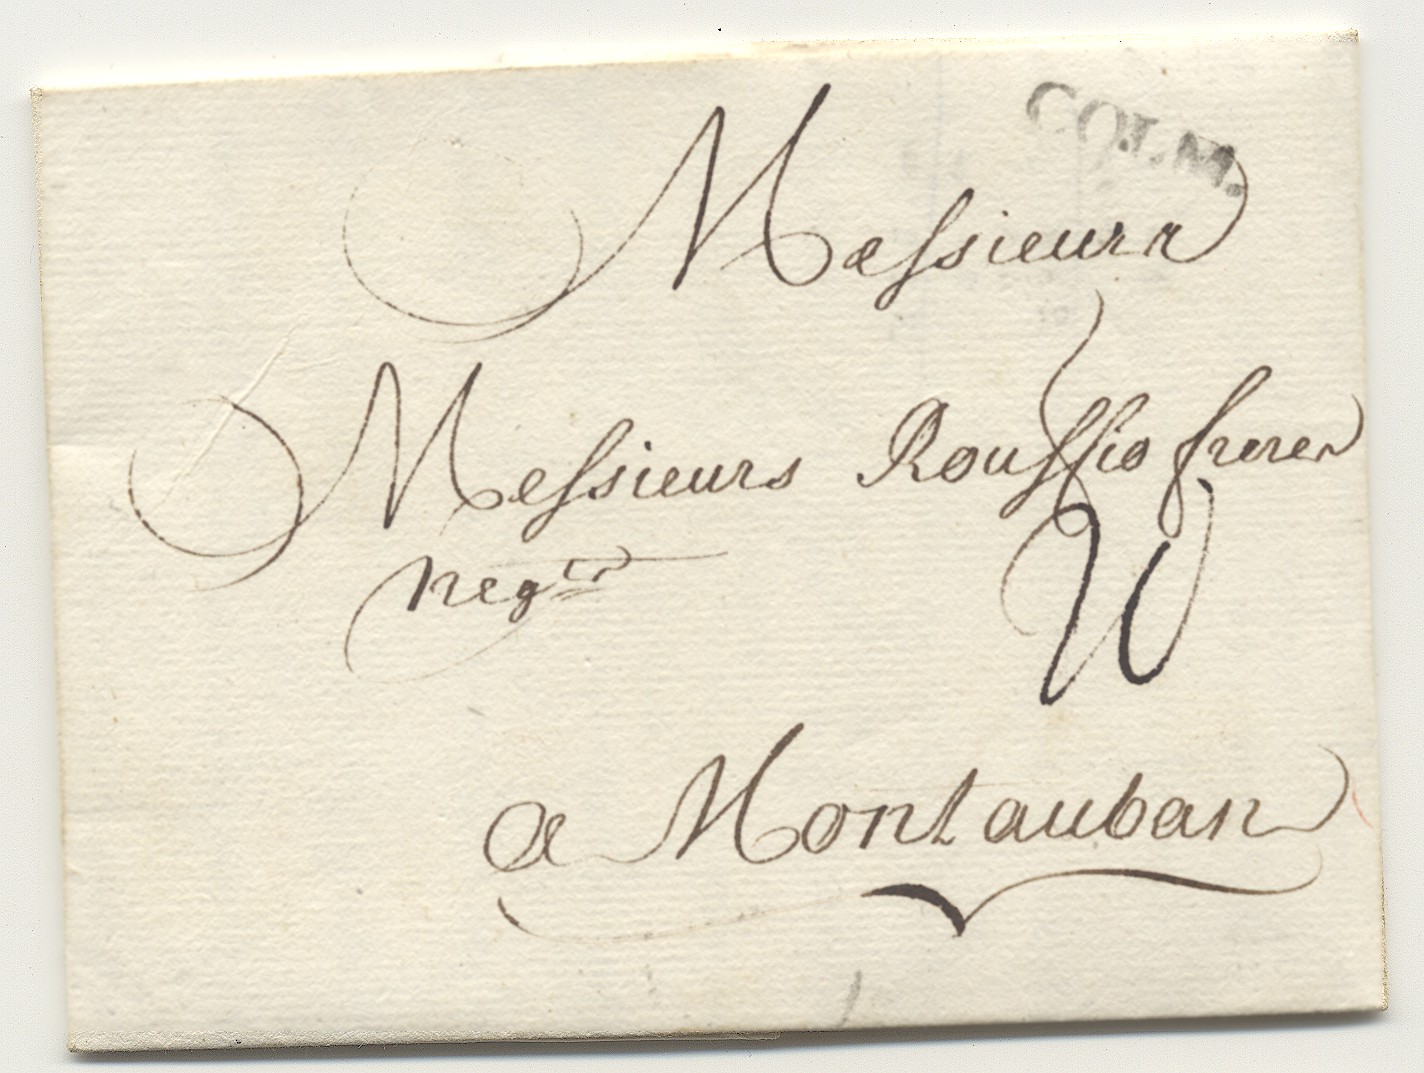 COL.M.
Messieurs
Messieurs Rouffio freres
Negts
a Montauban